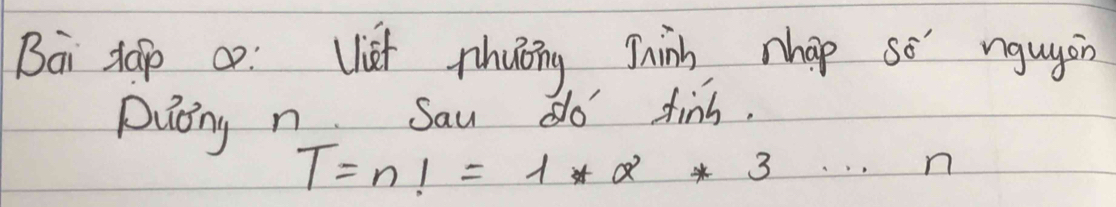 Bài tập 2: Viết phương Trình nhập số nguyên
Dương n. Sau đó tính.
T = n! = 1 * 2 * 3 ... n